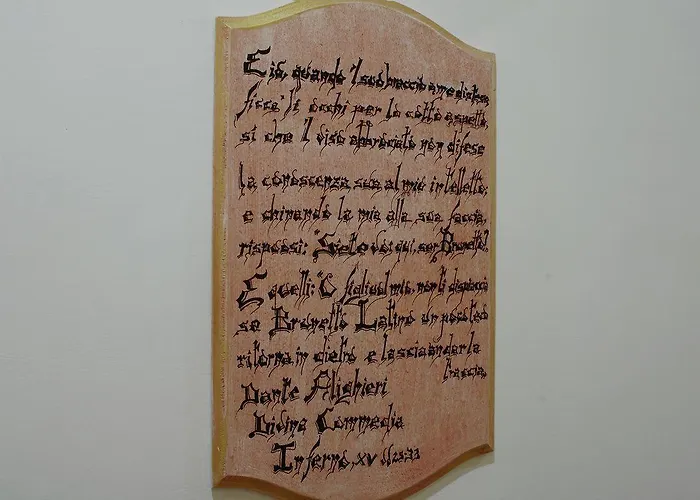 E io, quando 'l suo braccio a me distese,
ficcai li occhi per lo cotto aspetto,
sì che 'l viso abbruciato non difese
la conoscenza sua al mio intelletto;
e chinando la mia alla sua faccia,
risposi: "Siete voi qui, ser Brunetto?
E quelli: "O figliuol mio, non ti dispiaccia
se Brunetto Latino un poco teco
ritorna in dietro e lascia andar la
traccia.
Dante Alighieri
Divina Commedia
Inferno, XV